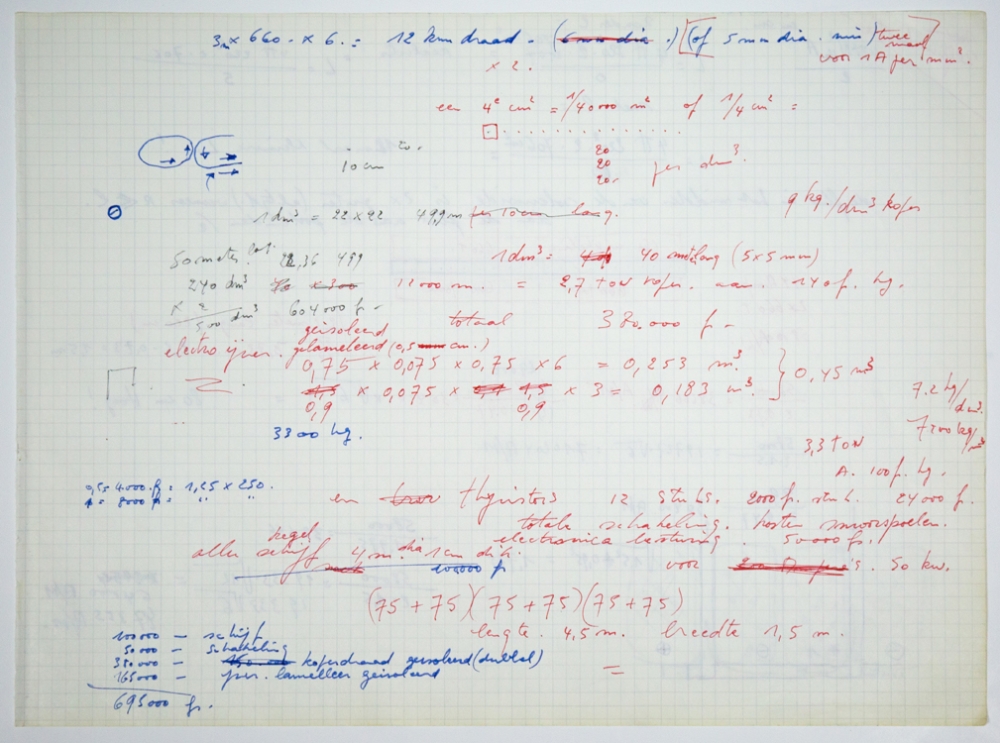 3m × 660. × 6. = 12 km draad - (6 mm dia.) (of 5 mm dia. min) twee maal
× 2. voor 1 A per mm².
een 4e cm² = 1/40000 m² of 1/4 cm² =
20
20 per dm³.
20.
20.
10 cm
1 dm³ = 22 × 92 49,9 m per 10 cm lang. 9 kg./dm³ koper
50 meter 22,36 499 1 dm³ = 40 m lang (5×5 mm)
240 dm³ × 300 12000 m. = 2,7 ton koper. aan. 140 f. kg.
× 2 604000 f.-
500 dm³
totaal 380.000 f -
geisoleerd
electro ijzer. gelameleerd (0,5 cm.)
0,75 × 0,075 × 0,75 × 6 = 0,253 m³
1,5 × 0,075 × 1,5 × 3 = 0,183 m³ } 0,45 m³
0,9 0,9
7.2 kg/dm³.
7200 kg/m³
3300 kg.
3,3 ton
A. 100 f. kg.
4000. f = 1,25 × 250.
8000 f = " "
en thyristors 12 stuks. 2000 f. stuk. 24000 f.
totale schakeling. kosten smoorspoelen.
electronica besturing. 50000 fr.
kegel
schijf 4 m. dia 1 cm dik.
100000 f
voor 50 kw.
(75 + 75)(75 + 75)(75 + 75)
lengte. 4,5 m. breedte 1,5 m.
=
100000 - schijf
50000 - schakeling
380000 - koperdraad geisoleerd (dubbel)
165000 - ijzer. lamelleer geisoleerd
695000 fr.